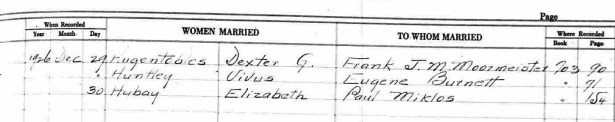 Page
When Recorded WOMEN MARRIED TO WHOM MARRIED Where Recorded
Year Month Day Book Page
1926 Dec 29 Dexter G. Frank J. M. Moormeister 703 90
" Huntley Vivus Eugene Burnett " 91
30 Hubay Elizabeth Paul Miklos " 154